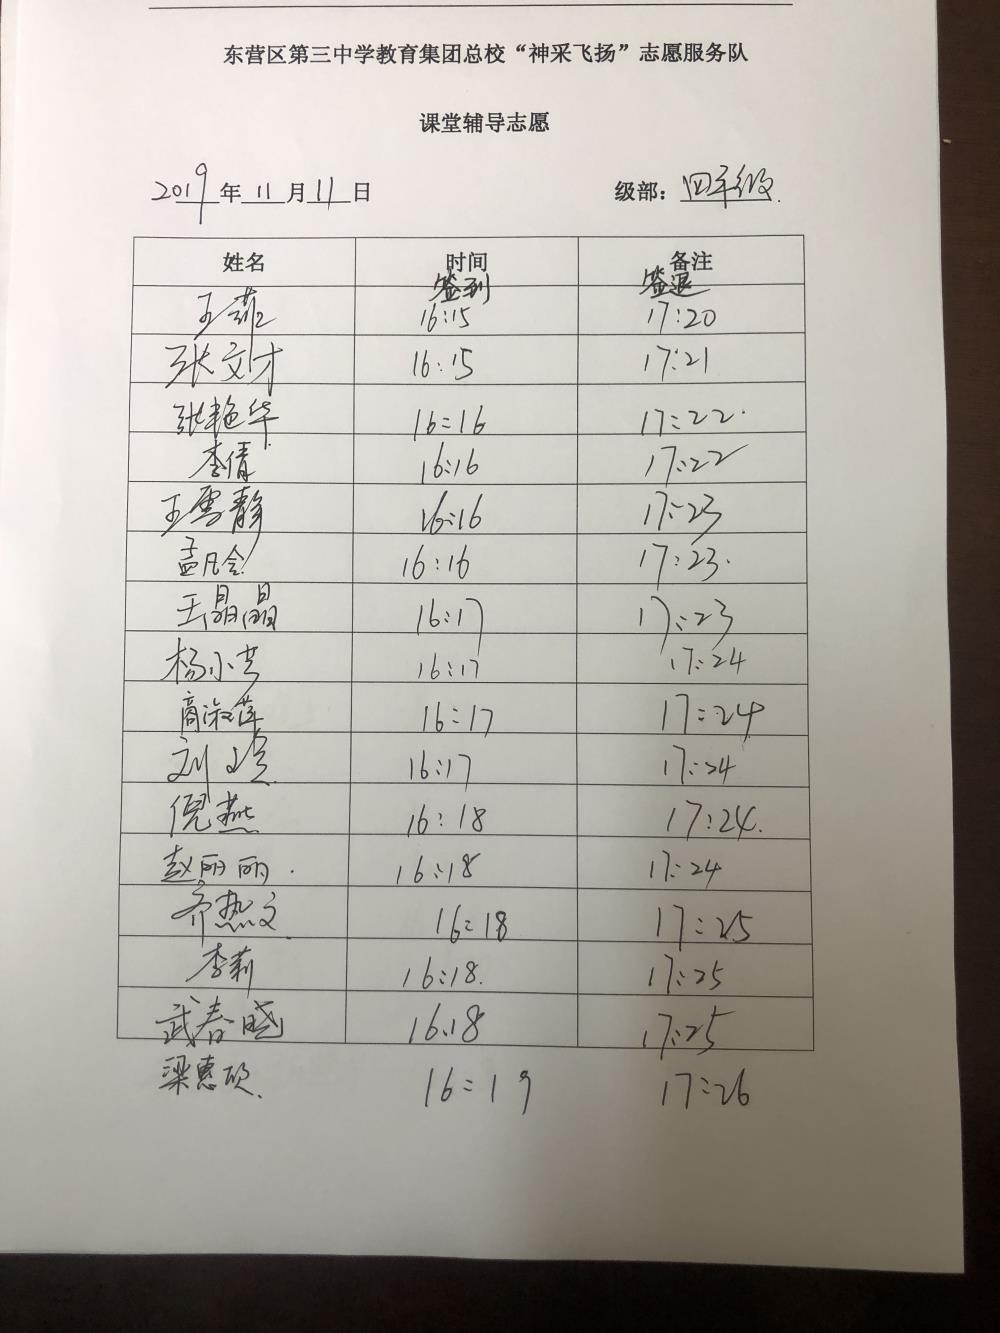 东营区第三中学教育集团总校“神采飞扬”志愿服务队
课堂辅导志愿
2019年11月11日 级部：四年级
姓名 时间 备注
签到 签退
王菲 16:15 17:20
张文才 16:15 17:21
张艳华 16:16 17:22
李倩 16:16 17:22
王雪静 16:16 17:23
孟凡会 16:16 17:23
王晶晶 16:17 17:23
杨小芳 16:17 17:24
商淑莲 16:17 17:24
刘 16:17 17:24
倪燕 16:18 17:24
赵丽丽 16:18 17:24
齐热文 16:18 17:25
李莉 16:18 17:25
武春晓 16:18 17:25
梁惠欣 16:19 17:26